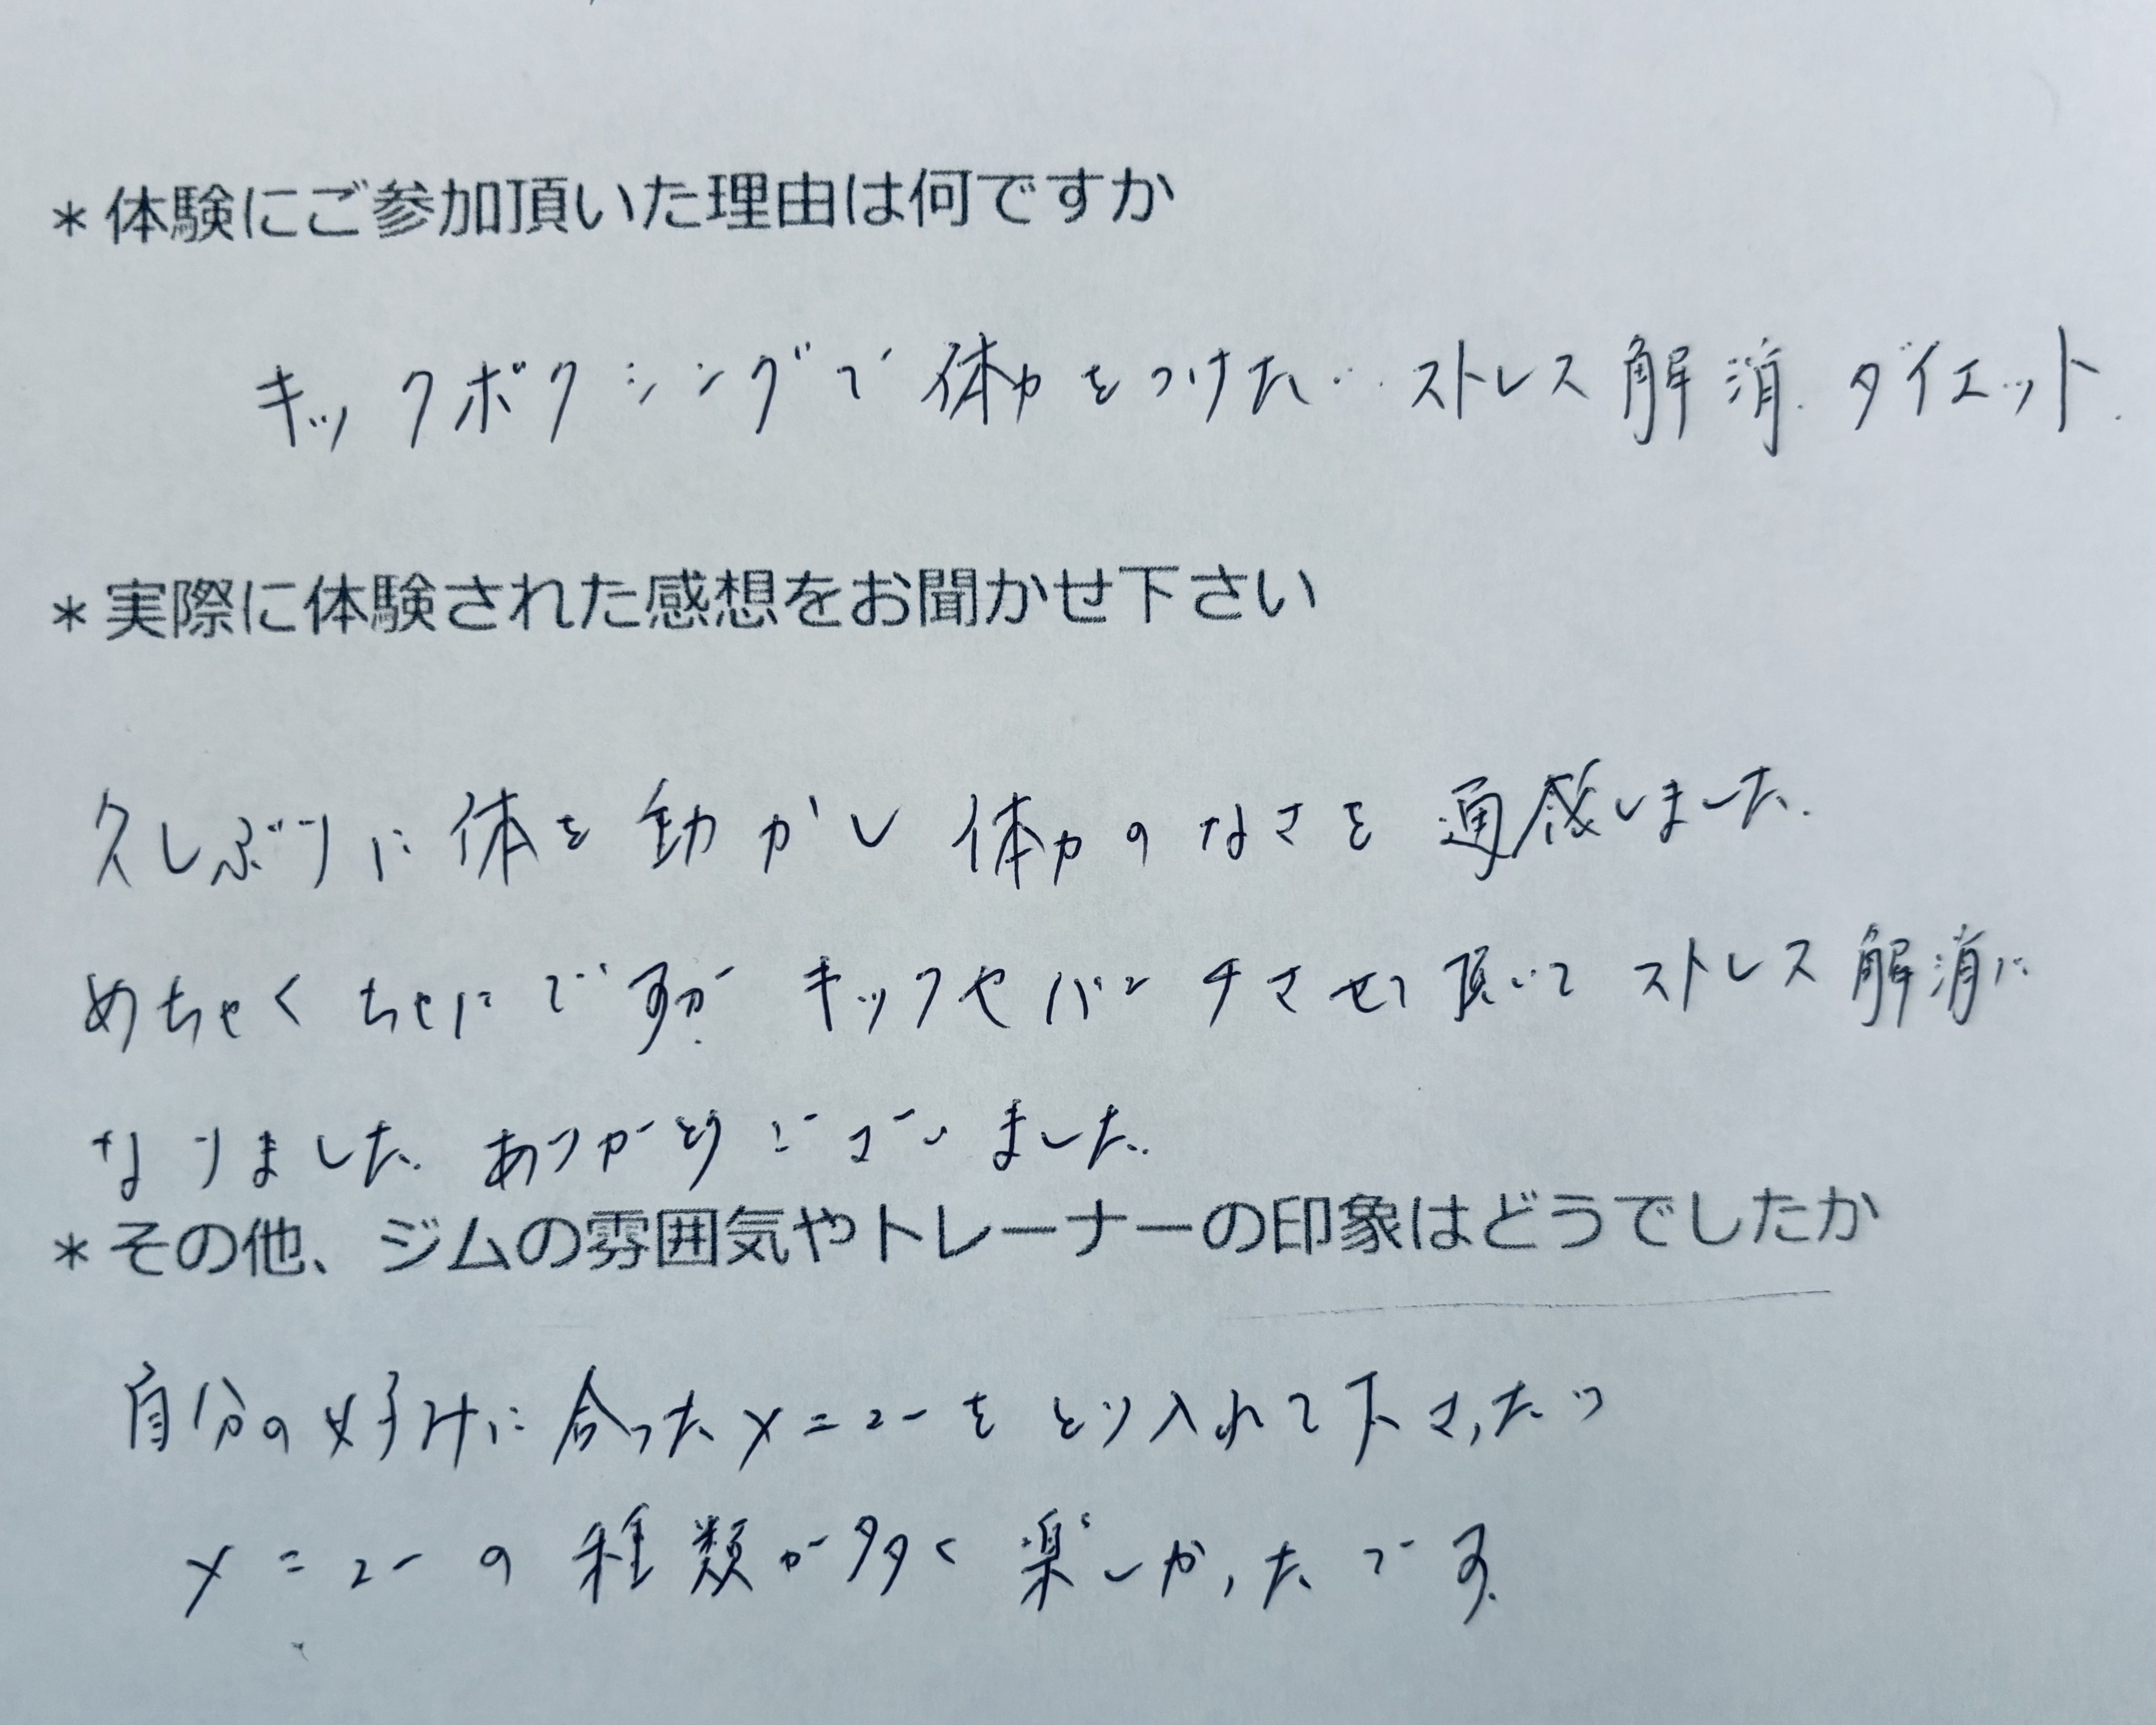 *体験にご参加頂いた理由は何ですか
キックボクシングで体力をつけたい.ストレス解消.ダイエット.
*実際に体験された感想をお聞かせ下さい
久しぶりに体を動かし体力のなさを通感しました.
めちゃくちゃにですが キックやパンチさせて頂いてストレス解消に
なりました.ありがとうございました.
*その他、ジムの雰囲気やトレーナーの印象はどうでしたか
自分の好みに合ったメニューをとり入れて下さったり
メニューの種類が多く楽しかったです.